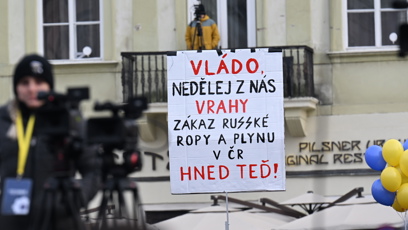 VLÁDO,
NEDĚLEJ Z NÁS
VRAHY
ZÁKAZ RUSSKÉ
ROPY A PLYNU
V ČR
HNED TEĎ!
PILSNER
ORIGINAL REST